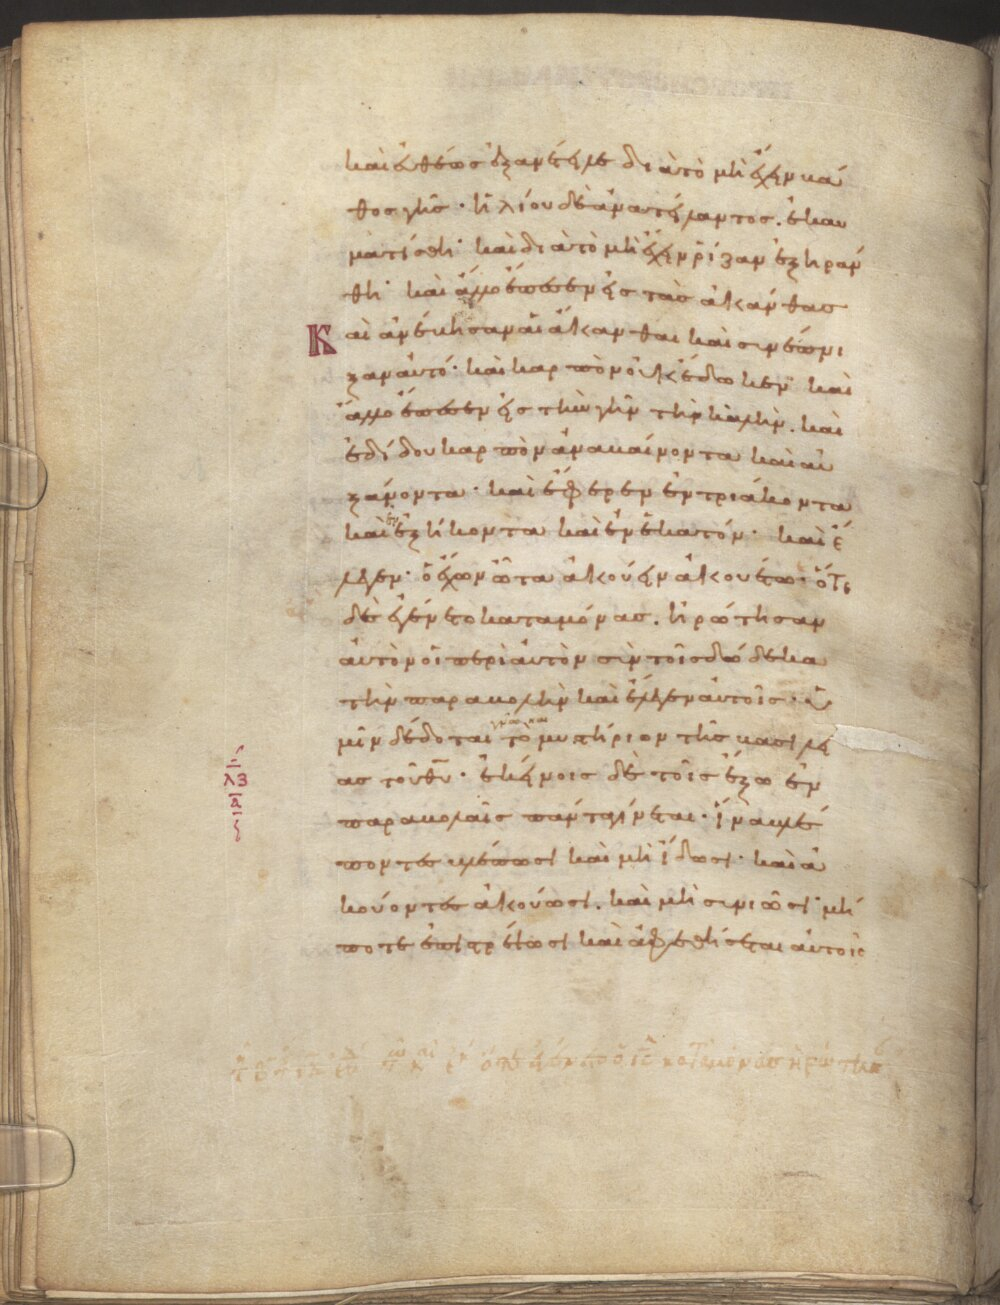 καὶ ἐυθέως ἐξανέτειλε διὰ τὸ μὴ ἔχειν βά
θος γῆς· ἡλίου δὲ ἀνατείλαντος, ἐκαυ
ματίσθη· καὶ διὰ τὸ μὴ ἔχειν ῥίζαν ἐξηράν
θη· καὶ ἄλλο ἔπεσεν εἰς τὰς ἀκάνθας
Καὶ ἀνέβησαν αἱ ἄκανθαι καὶ συνέπνι
ξαν ἀυτό· καὶ καρπὸν οὐκ ἔδωκεν· καὶ
ἄλλο ἔπεσεν εἰς τὴν γῆν τὴν καλὴν. καὶ
ἐδίδου καρπὸν ἀναβαίνοντα καὶ αὐ
ξάνοντα· καὶ ἔφερεν ἐν τριάκοντα
καὶ ἐν ἑξήκοντα καὶ ἐν ἑκατόν· καὶ ἔ
λεγεν· ὁ ἔχων ὦτα ἀκούειν ἀκουέτω· ὅτε
δὲ ἐγένετο καταμόνας, ἠρώτησαν
ἀυτὸν οἱ περὶ ἀυτὸν σὺν τοῖς δώδεκα
τὴν παραβολὴν καὶ ἔλεγεν ἀυτοῖς· ὑ
μῖν δέδοται γνῶναι τὸ μυστήριον τῆς βασιλεί
ας τοῦ θυ· ἐκείνοις δὲ τοῖς ἔξω ἐν
παραβολαῖς πάντα γίνεται· ἵνα βλέ
ποντες βλέπωσι καὶ μὴ ἴδωσι· καὶ ἀ
κούοντες ἀκούωσι, καὶ μὴ συνιῶσι· μή
ποτε ἐπιστρέψωσι καὶ ἀφεθήσεται αὐτοῖς
λζ
α